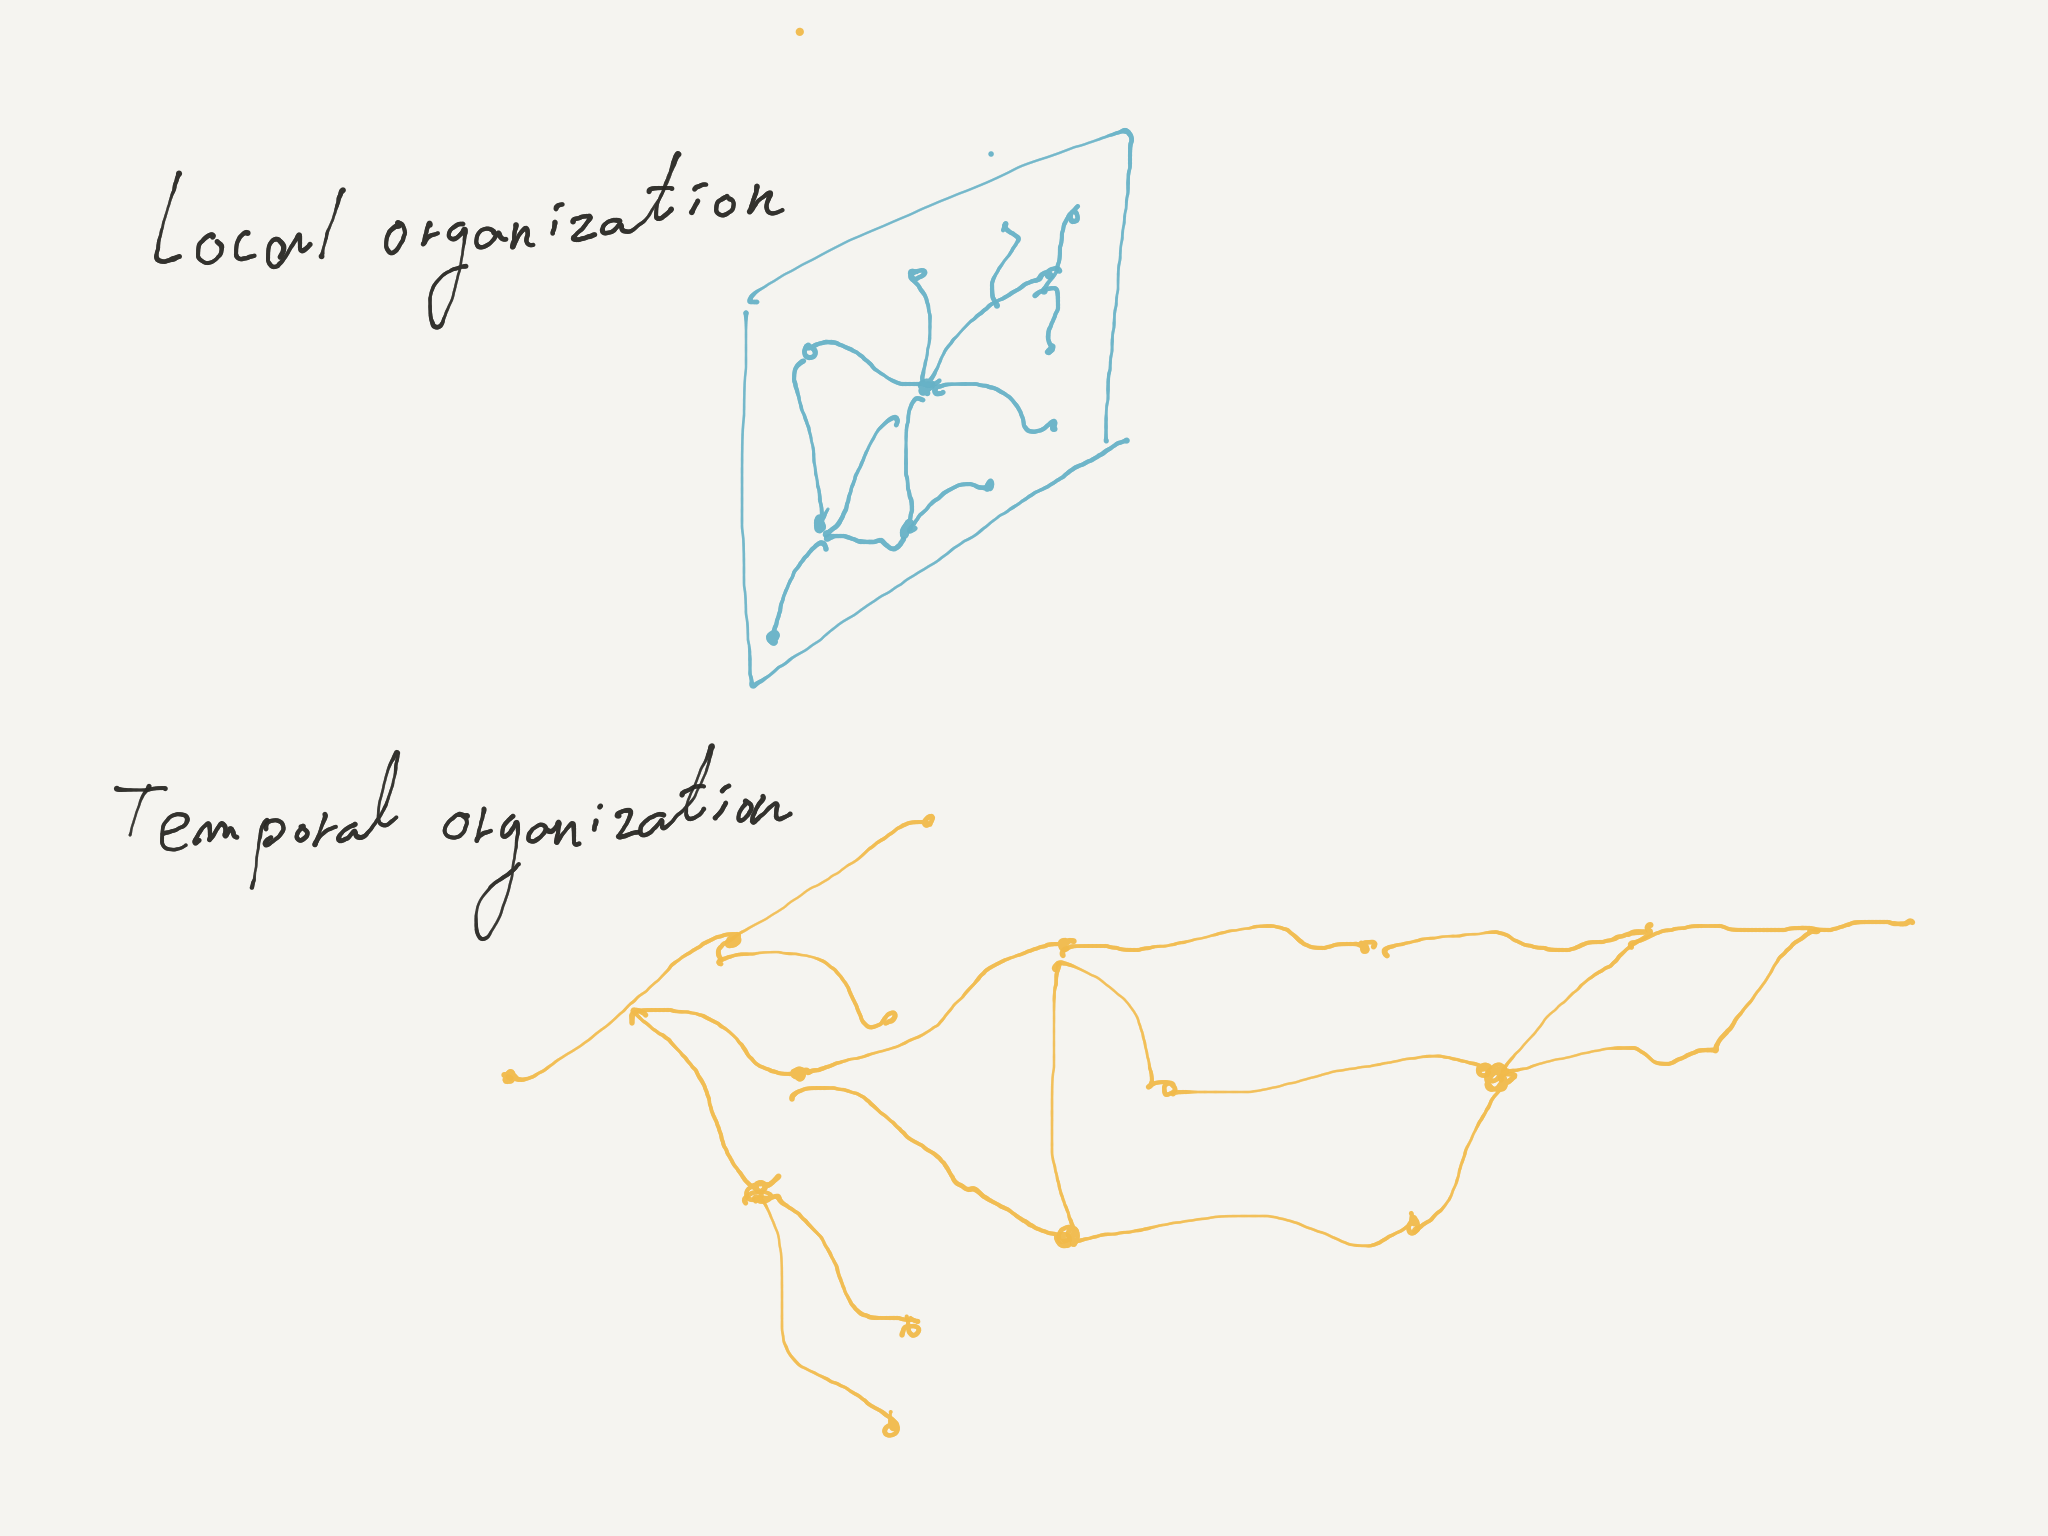 Local organization
Temporal organization